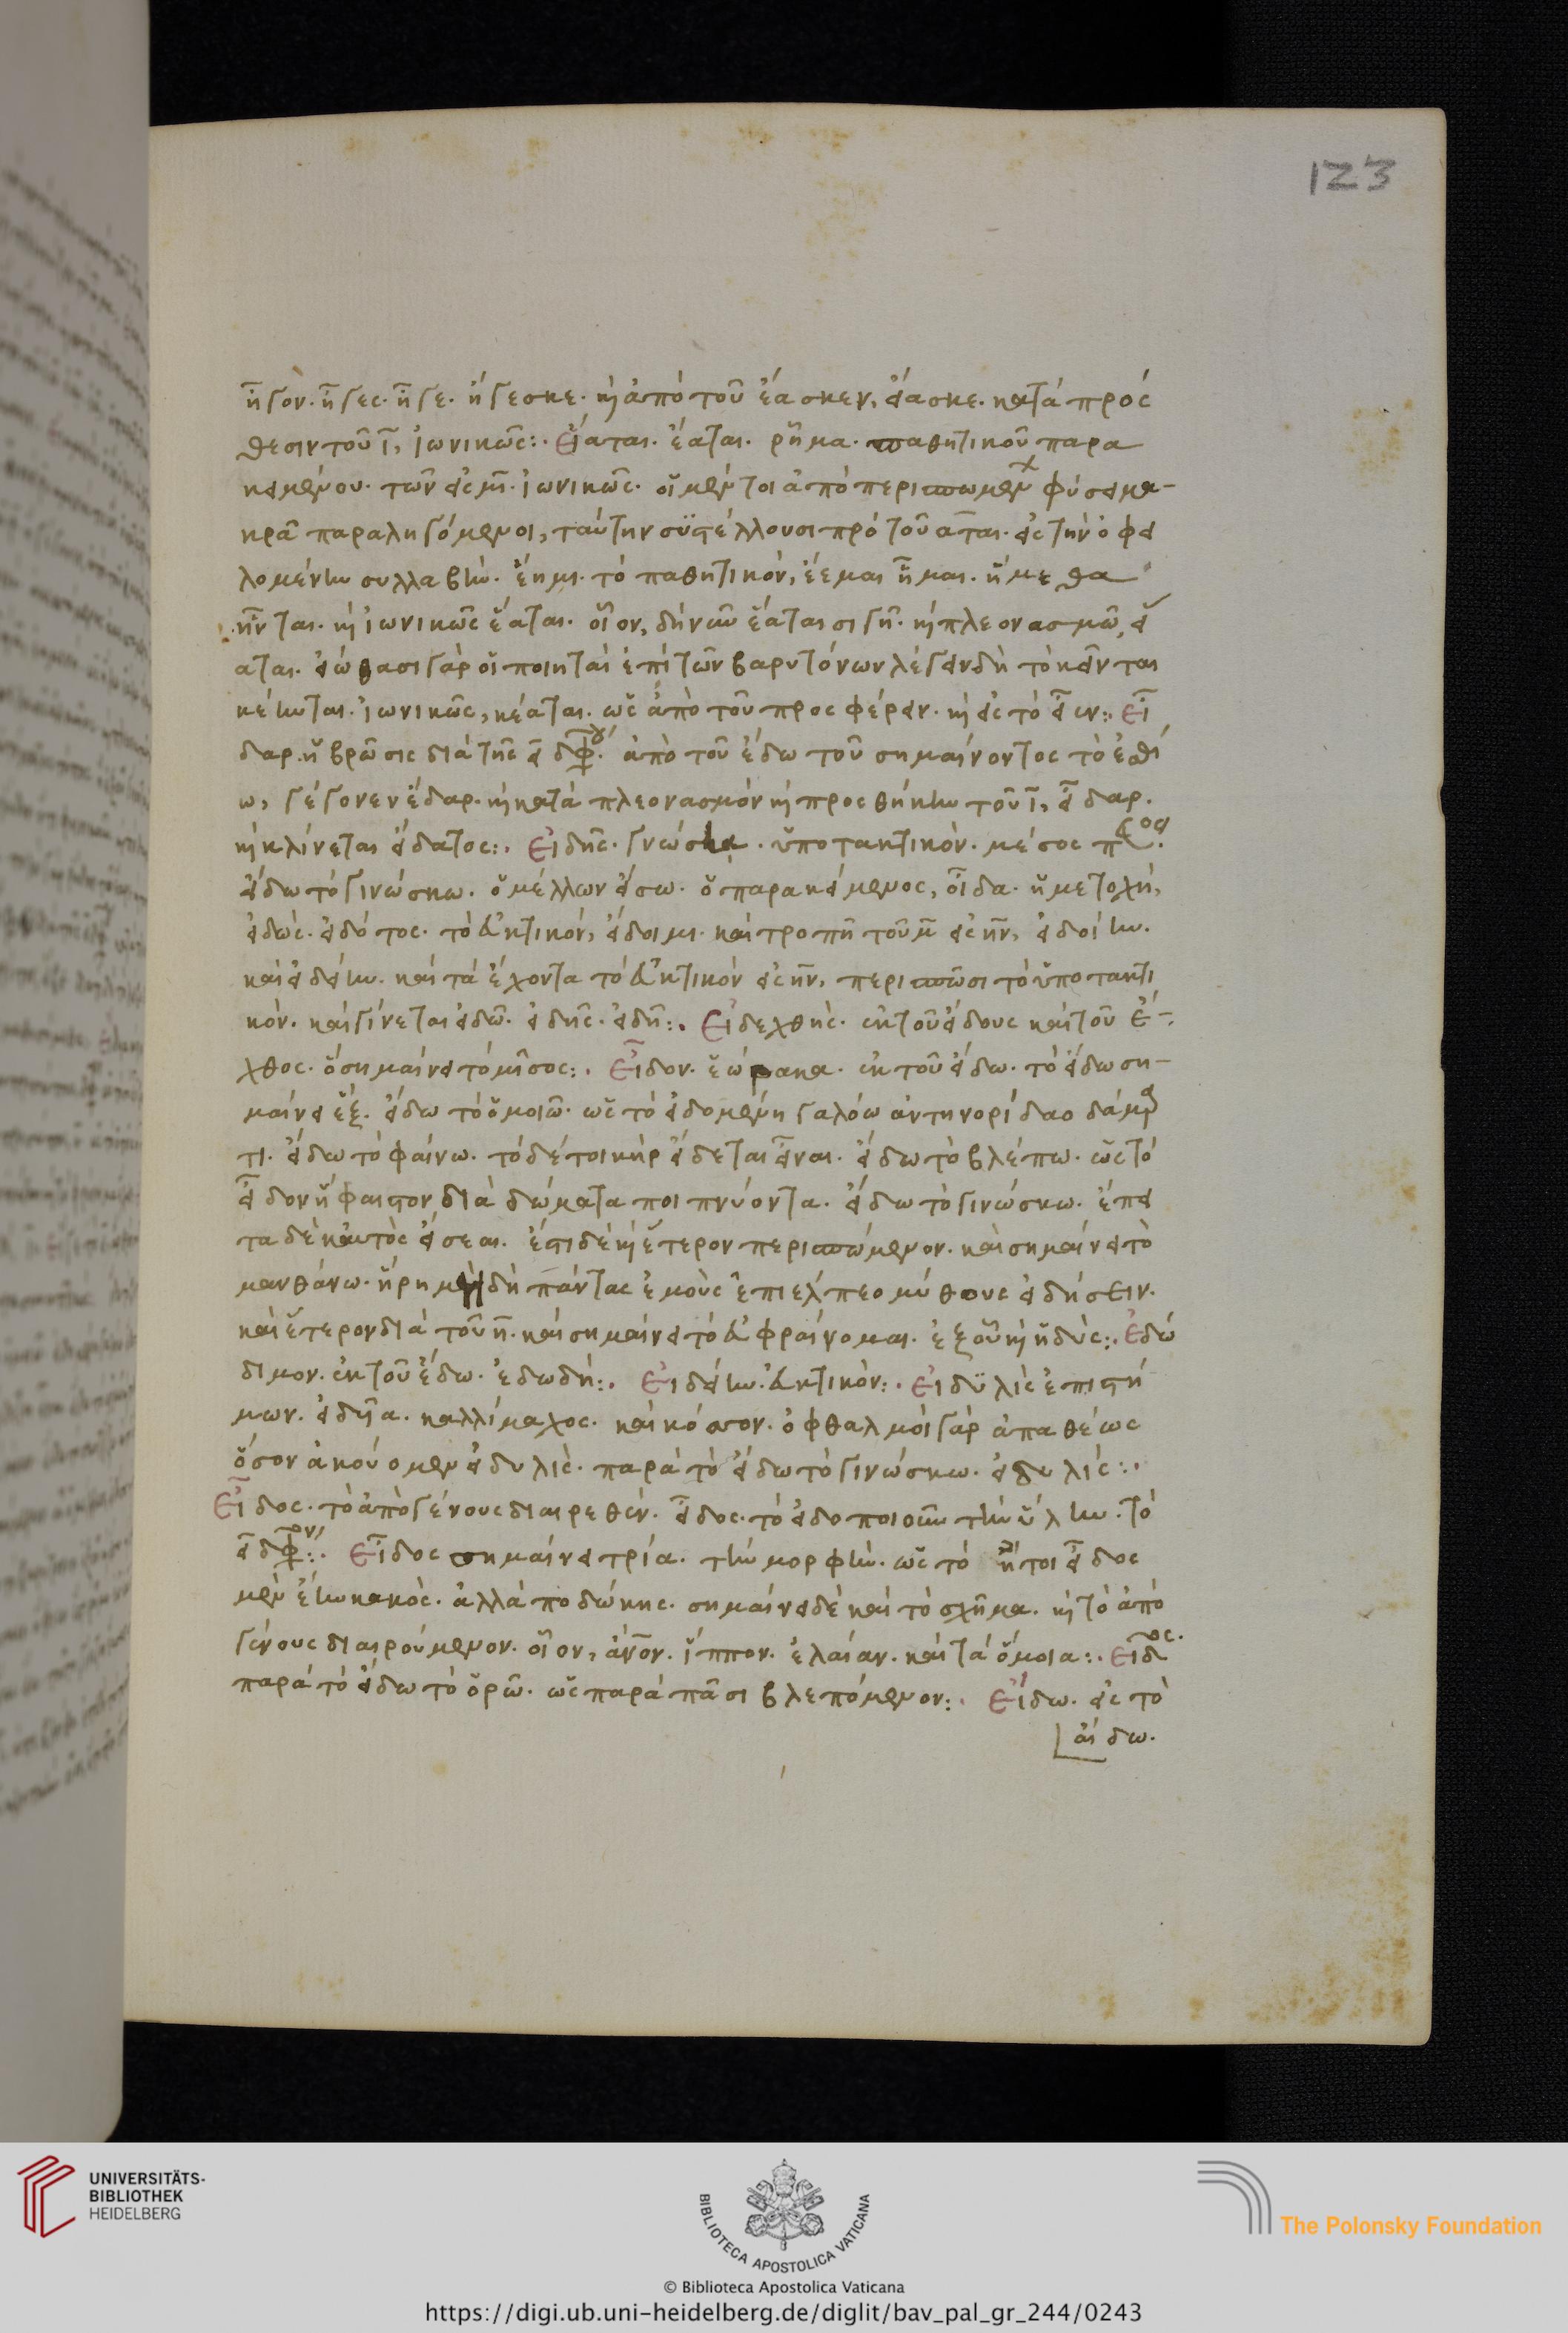 123
ἦγον. ἦγες. ἦγε. ἤγεσκε. καὶ ἀπὸ τοῦ ἔασκεν, εἴασκε. κατὰ πρός
θεσιν τοῦ ῑ, ἰωνικῶς:. Εἵαται. ἕαται. ῥῆμα. παθητικοῦ παρα
κειμένου. τῶν εἰς μῑ. ἰωνικῶς. οἱ μέντοι ἀπὸ περισπωμεν φύσει μα-
κρᾶ παραληγόμενοι, ταύτην συστέλλουσι πρὸ τοῦ αται. εἰς τὴν ὀφει
λομένην συλλαβήν. ἕημι. τὸ παθητικόν, ἕεμαι ἧμαι. ἥμεθα
ἧνται. καὶ ἰωνικῶς ἕαται. οἷον, δὴν ἕαται σιγῆ. καὶ πλεονασμῶ, εἵ
αται. εἰώθασι γὰρ οἱ ποιηταὶ ἐπὶ τῶν βαρυτόνων λέγειν δὴ τὸ κεῖνται
κέηνται. ἰωνικῶς, κέαται. ὡς ἀπὸ τοῦ προσφέρειν. καὶ εἰς τὸ εἶεν:. Εἶ
δαρ. ἡ βρῶσις διὰ τῆς ει δφθγ. ἀπὸ τοῦ ἔδω τοῦ σημαίνοντος τὸ ἐσθί
ω, γέγονεν ἔδαρ. καὶ κατὰ πλεονασμὸν καὶ προσθήκην τοῦ ῑ, εἶδαρ.
καὶ κλίνεται εἴδατος:. Εἰδῆς. γνώσῃ. ὑποτακτικὸν. μέσος
εἴδω τὸ γινώσκω. ὁ μέλλων εἴσω. ὁ παρακείμενος, οἶδα. ἡ μετοχή,
εἰδὼς. εἰδότος. τὸ εὐκτικόν, εἴδοιμι. καὶ τροπῆ τοῦ μῑ εἰς ην, εἰδοίην.
καὶ εἰδείην. καὶ τὰ ἔχοντα τὸ εὐκτικὸν εἰς ην, περισπῶσι τὸ ὑποτακτι
κόν. καὶ γίνεται εἰδῶ. εἰδῆς. εἰδῆ:. Εἰδεχθής. ἐκ τοῦ εἴδους καὶ τοῦ ἔ-
χθος. ὃ σημαίνει τὸ μῖσος:. Εἶδον. ἑώρακα. ἐκ τοῦ εἴδω. τὸ εἴδω ση-
μαίνει ἕξ. εἴδω τὸ ὁμοιῶ. ὡς τὸ εἰδομένη γαλόω ἀντηνορίδαο δάμαρ
τι. εἴδω τὸ φαίνω. τὸ δέ τοι κὴρ εἴδεται εἶναι. εἴδω τὸ βλέπω. ὡς τὸ
εἶδον ἥφαιστον διὰ δώματα ποιπνύοντα. εἴδω τὸ γινώσκω. ἔπει
τα δὲ καὐτὸς εἴσεαι. ἔστι δὲ καὶ ἕτερον περισπώμενον. καὶ σημαίνει τὸ
μανθάνω. ἥρη μὴ δὴ πάντας ἐμοὺς ἐπιέλπεο μύθους εἰδήσειν.
καὶ ἕτερον διὰ τοῦ η. καὶ σημαίνει τὸ εὐφραίνομαι. ἐξ οὗ καὶ ἡδύς:. Ἐδώ
διμον. ἐκ τοῦ ἔδω. ἐδωδή:. Εἰδείην. εὐκτικὸν:. Εἰδυλὶς ἐπιστή
μων. εἰδυῖα. καλλίμαχος. καὶ κόσσον. ὀφθαλμοὶ γὰρ ἀπαθέως
ὅσον ἀκούομεν εἰδυλίς. παρὰ τὸ εἴδω τὸ γινώσκω. εἰδυλίς:.
Εἶδος. τὸ ἀπὸ γένους διαιρεθέν. εἶδος. τὸ εἰδοποιοῦν τὴν ὕλην. τὸ
ει δφθον:. Εἶδος σημαίνει τρία. τὴν μορφὴν. ὡς τὸ ἤτοι εἶδος
μὲν ἔην κακὸς. ἀλλὰ ποδώκης. σημαίνει δὲ καὶ τὸ σχῆμα. καὶ τὸ ἀπὸ
γένους διαιρούμενον. οἷον, ἄνον. ἵππον. ἐλαίαν. καὶ τὰ ὅμοια:. Εἶδος.
παρὰ τὸ εἴδω τὸ ὁρῶ. ὡς παρὰ πᾶσι βλεπόμενον:. Εἴδω. εἰς τὸ
αἴδω.
UNIVERSITÄTS-
BIBLIOTHEK
HEIDELBERG
BIBLIOTECA APOSTOLICA VATICANA
The Polonsky Foundation
© Biblioteca Apostolica Vaticana
https://digi.ub.uni-heidelberg.de/diglit/bav_pal_gr_244/0243